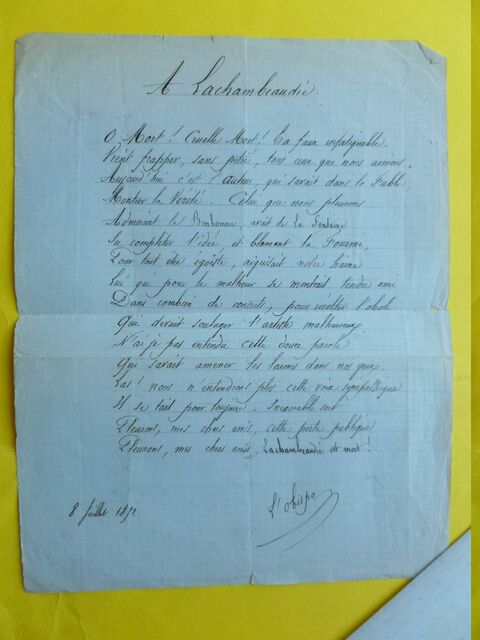 A Lachambeaudie.
O Mort! Cruelle Mort! Ta faux infatiguable
Vient frapper, sans pitié, tous ceux que nous aimions.
Aujourd'hui c'est l'auteur, qui savait dans la Fable
Montrer la Vérité. Celui que nous pleurons
Admirant le Bonhomme, avait de La Fontaine
Su compléter l'idée, et blamant la Fourmi,
Pour tout être egoïste, aiguisait notre haine
Lui qui pour le malheur se montrait tendre ami
Dans combien de concerts, pour récolter l'obole
Qui devait soulager l'artiste malheureux,
N'ai je pas entendu cette douce parole
Qui savait amener les larmes dans nos yeux.
Las! nous n'entendrons plus cette voix sympathique
Il se tait pour toujours. Inexorable sort
Pleurons, mes chers amis, cette perte publique
Pleurons, mes chers amis, Lachambeaudie est mort!
8 Juillet 1872